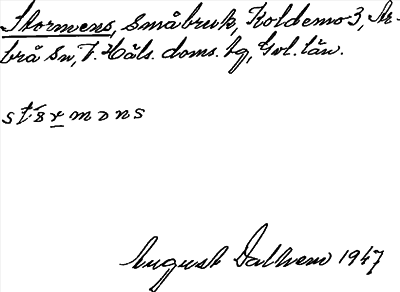 Stormens, småbruk, Koldemo 3, Ar-
brå sn, V. Häls. doms. hg, Gvl. län.
August Dalhem 1947